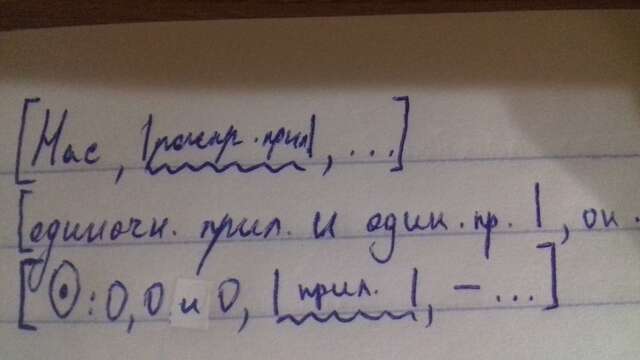 [Нас, |распр. прил|, ...]
[одиночн. прил. и один. пр. |, он.
[⊙: О, О и О, | прил. |, – ...]